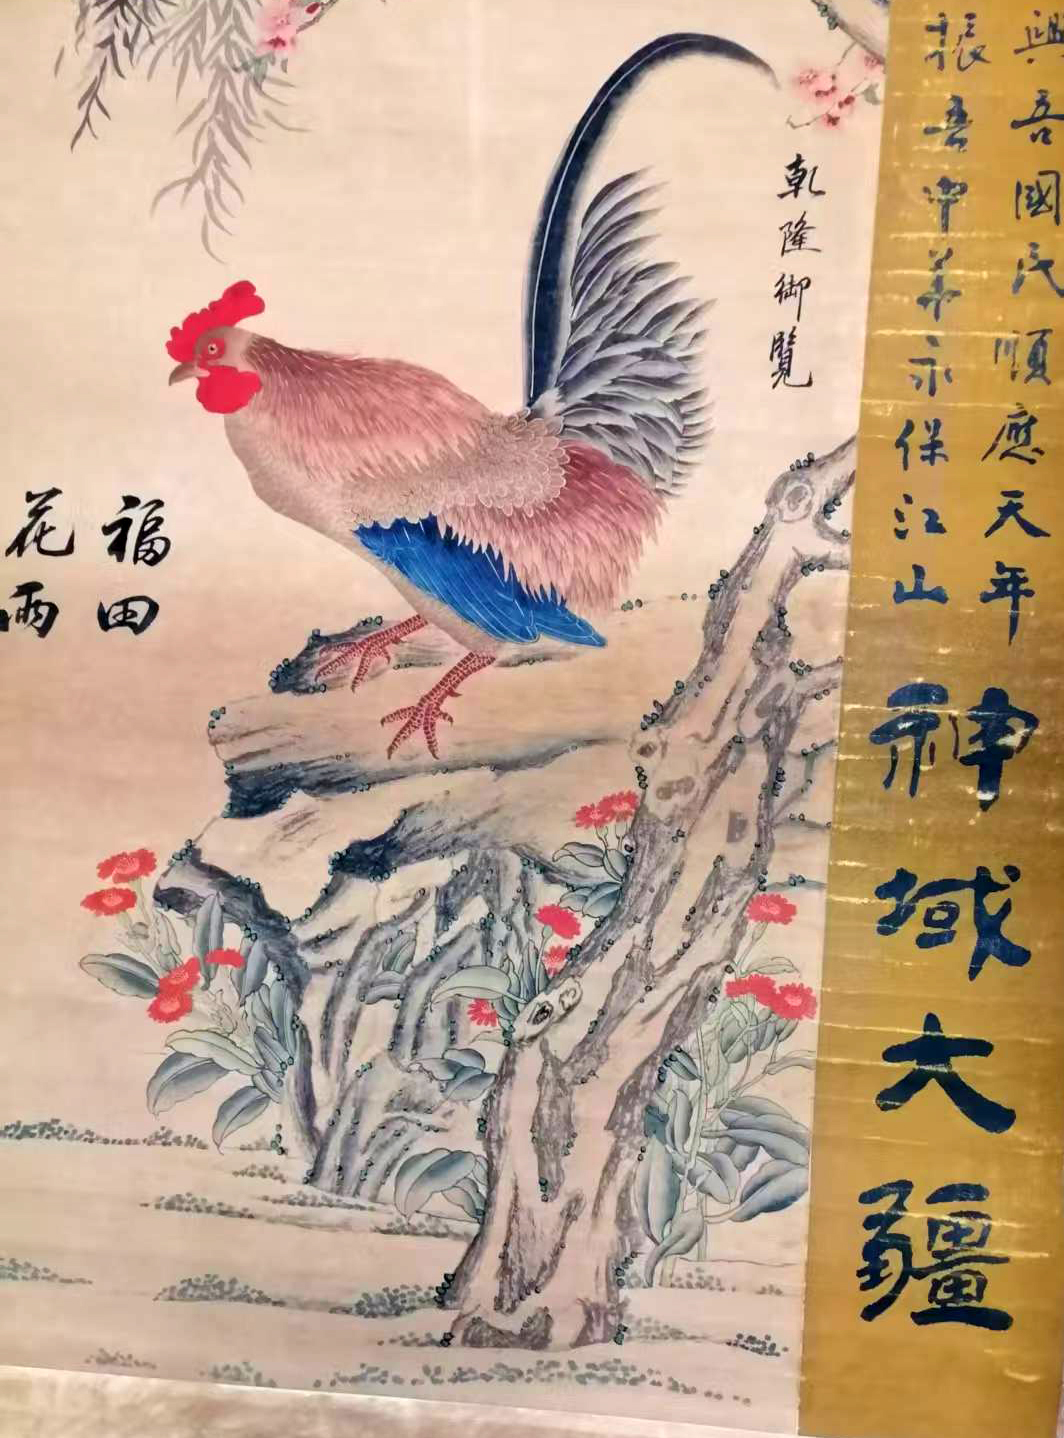 興吾國民順應天年
振吾中華永保江山
神域大疆
乾隆御覽
福田
花雨